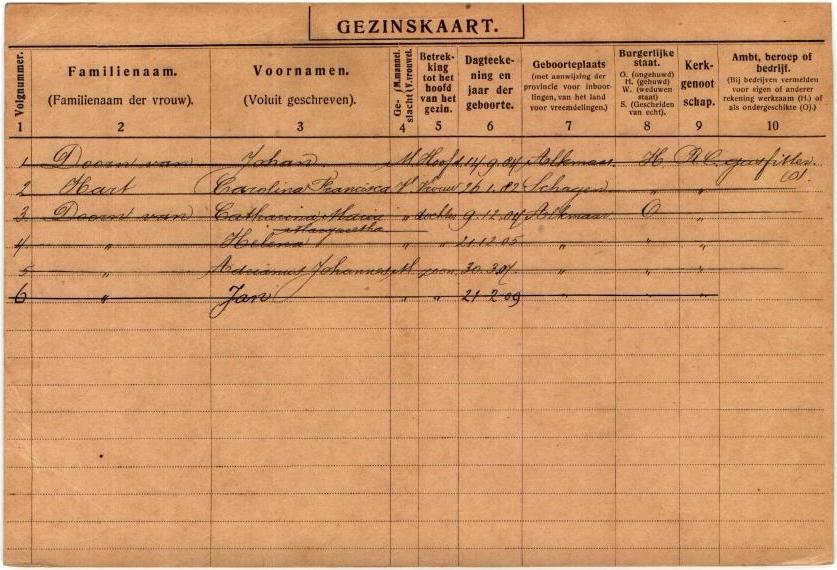 GEZINSKAART.
Volgnummer. Familienaam. (Familienaam der vrouw). Voornamen. (Voluit geschreven). Ge-slacht (M. mannel. V. vrouwel.) Betrek-king tot het hoofd van het gezin. Dagteeke-ning en jaar der geboorte. Geboorteplaats (met aanwijzing der provincie voor inboor-lingen, van het land voor vreemdelingen.) Burgerlijke staat. O. (ongehuwd) H. (gehuwd) W. (weduwen staat) S. (Gescheiden van echt). Kerk-genoot schap. Ambt, beroep of bedrijf. (Bij bedrijven vermelden voor eigen of anderer rekening werkzaam (H.) of als ondergeschikte (O).)
1 2 3 4 5 6 7 8 9 10
1 Doorn van Johan M. Hoofd 14.9.04 Alkmaar H R.C. gasfitter (o).
2 Hart Carolina Francisca V Vrouw 26.1.82 Schagen " "
3 Doorn van Catharina Maria " dochter 9.12.04 Alkmaar O "
Margaretha
4 " Helena " " 21.12.05 " " "
5 " Adrianus Johannes M zoon 30.3.07 " " "
6 " Jan " " 21-2-09 " " "